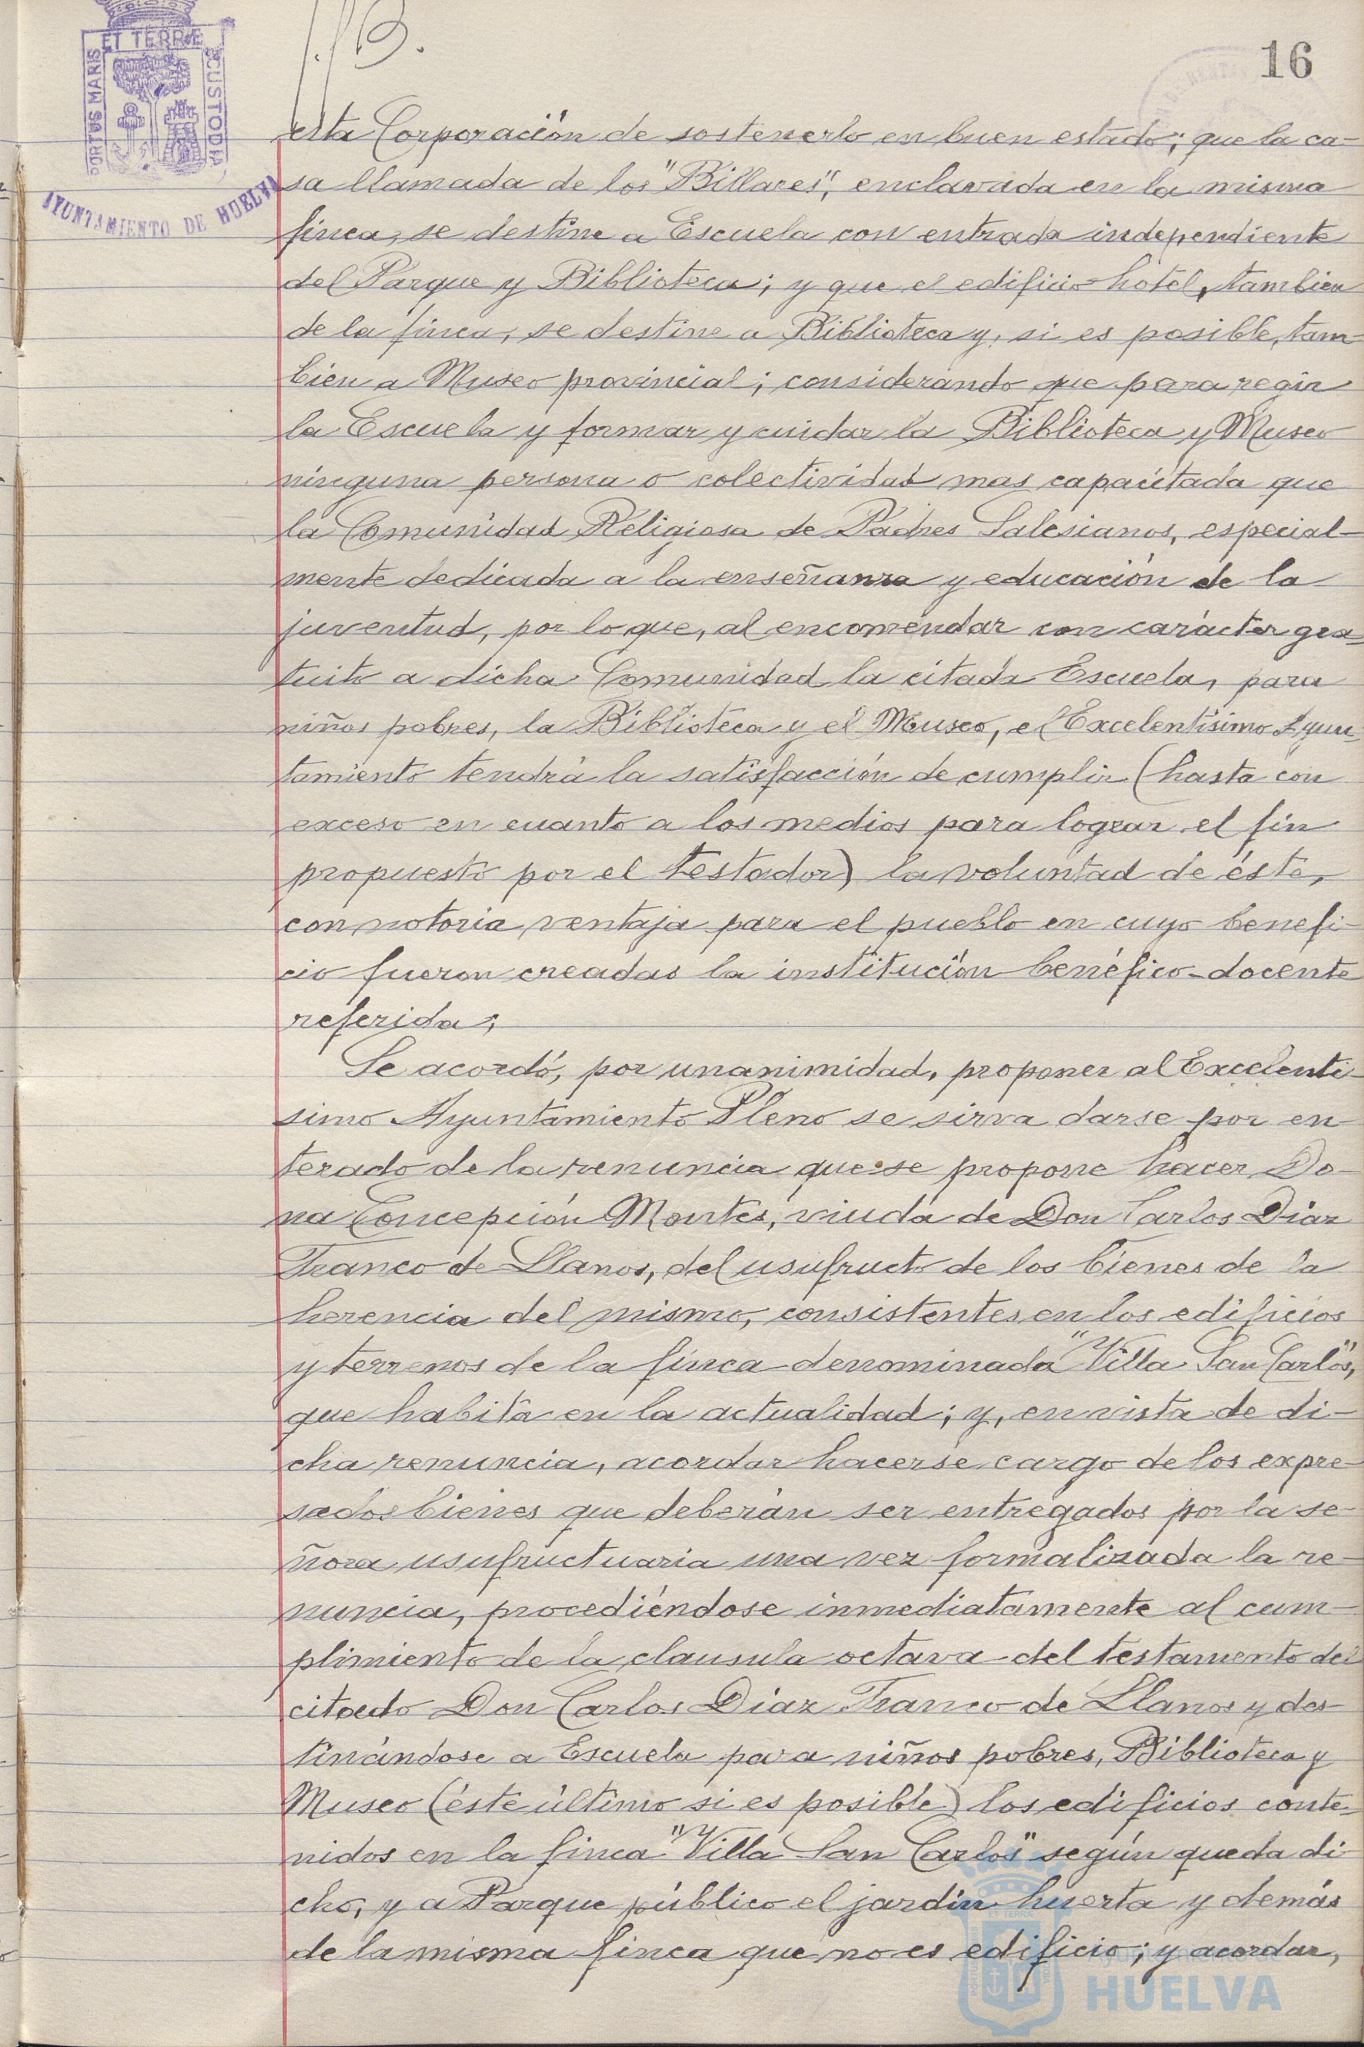 16
ET TERRÆ
PORTUS MARIS
CUSTODIA
AYUNTAMIENTO DE HUELVA
esta Corporación de sostenerlo en buen estado; que la ca-
sa llamada de los "Billares", enclavada en la misma
finca, se destine a Escuela con entrada independiente
del Parque y Biblioteca; y que el edificio hotel, tambien
de la finca, se destine a Biblioteca y, si es posible, tam-
bien a Museo provincial; considerando que para regir
la Escuela y formar y cuidar la Biblioteca y Museo
ninguna persona o colectividad mas capacitada que
la Comunidad Religiosa de Padres Salesianos, especial-
mente dedicada a la enseñanza y educación de la
juventud, por lo que, al encomendar con carácter gra-
tuito a dicha Comunidad la citada Escuela, para
niños pobres, la Biblioteca y el Museo, el Excelentísimo Ayun-
tamiento tendrá la satisfacción de cumplir (hasta con
exceso en cuanto a los medios para lograr el fin
propuesto por el testador) la voluntad de éste,
con notoria ventaja para el pueblo en cuyo benefi-
cio fueron creadas la institución benéfico-docente
referida;
Se acordó, por unanimidad, proponer al Excelenti-
simo Ayuntamiento Pleno se sirva darse por en-
terado de la renuncia que se propone hacer Do-
ña Concepción Montes, viuda de Don Carlos Diaz
Franco de Llanos, del usufructo de los bienes de la
herencia del mismo, consistentes en los edificios
y terrenos de la finca denominada "Villa San Carlos",
que habita en la actualidad; y, en vista de di-
cha renuncia, acordar hacerse cargo de los expre-
sados bienes que deberán ser entregados por la se-
ñora usufructuaria una vez formalizada la re-
nuncia, procediéndose inmediatamente al cum-
plimiento de la clausula octava del testamento del
citado Don Carlos Diaz Franco de Llanos y des-
tinándose a Escuela para niños pobres, Biblioteca y
Museo (éste último si es posible) los edificios conte-
nidos en la finca "Villa San Carlos" según queda di-
cho, y a Parque público el jardín huerta y demás
de la misma finca que no es edificio; y acordar,
Ayuntamiento de
HUELVA